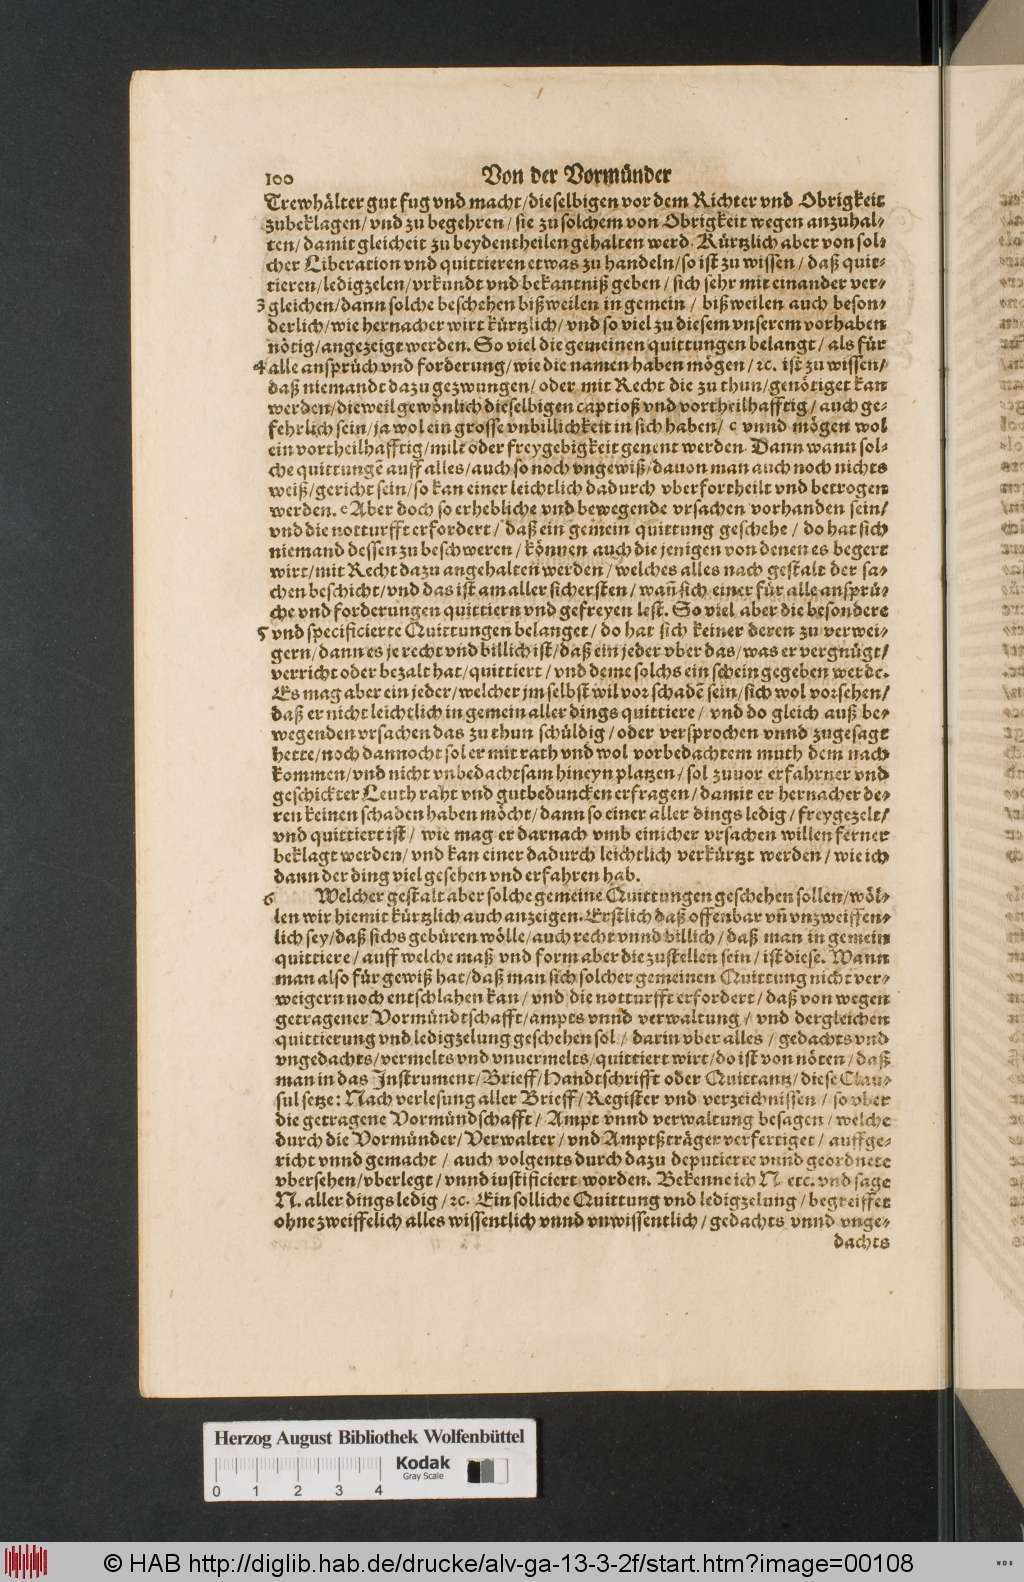 100 Von der Vormünder
Trewhälter gut fug vnd macht/dieselbigen vor dem Richter vnd Obrigkeit
zubeklagen/vnd zu begehren/sie zu solchem von Obrigkeit wegen anzuhal-
ten/damit gleicheit zu beydentheilen gehalten werd. Kürtzlich aber von sol-
cher Liberation vnd quittieren etwas zu handeln/so ist zu wissen/daß quit-
tieren/ledigzelen/vrkundt vnd bekantniß geben/sich sehr mit einander ver-
3 gleichen/dann solche beschehen bißweilen in gemein/bißweilen auch beson-
derlich/wie hernacher wirt kürtzlich/vnd so viel zu diesem vnserem vorhaben
nötig/angezeigt werden. So viel die gemeinen quittungen belangt/als für
4 alle ansprüch vnd forderung/wie die namen haben mögen/ꝛc. ist zu wissen/
daß niemandt dazu gezwungen/oder mit Recht die zu thun/genötiget kan
werden/dieweil gewönlich dieselbigen captioß vnd vortheilhafftig/auch ge-
fehrlich sein/ja wol ein grosse vnbillichkeit in sich haben/c vnnd mögen wol
ein vortheilhafftig/milt oder freygebigkeit genent werden. Dann wann sol-
che quittungē auff alles/auch so noch vngewiß/dauon man auch noch nichts
weiß/gericht sein/so kan einer leichtlich dadurch vberfortheilt vnd betrogen
werden. e Aber doch so erhebliche vnd bewegende vrsachen vorhanden sein/
vnd die notturfft erfordert/daß ein gemein quittung geschehe/do hat sich
niemand dessen zu beschweren/können auch die jenigen von denen es begert
wirt/mit Recht dazu angehalten werden/welches alles nach gestalt der sa-
chen beschicht/vnd das ist am aller sichersten/wañ sich einer für alle ansprü-
che vnd forderungen quittiern vnd gefreyen lest. So viel aber die besondere
5 vnd specificierte Quittungen belanget/do hat sich keiner deren zu verwei-
gern/dann es je recht vnd billich ist/daß ein jeder vber das/was er vergnügt/
verricht oder bezalt hat/quittiert/vnd deme solchs ein schein gegeben werde.
Es mag aber ein jeder/welcher jm selbst wil vor schadē sein/sich wol vorsehen/
daß er nicht leichtlich in gemein aller dings quittiere/vnd do gleich auß be-
wegenden vrsachen das zu thun schüldig/oder versprochen vnnd zugesagt
hette/noch dannocht sol er mit rath vnd wol vorbedachtem muth dem nach
kommen/vnd nicht vnbedachtsam hineyn platzen/sol zuuor erfahrner vnd
geschickter Leuth raht vnd gutbeduncken erfragen/damit er hernacher de-
ren keinen schaden haben möcht/dann so einer aller dings ledig/freygezelt/
vnd quittiert ist/wie mag er darnach vmb einicher vrsachen willen ferner
beklagt werden/vnd kan einer dadurch leichtlich verkürtzt werden/wie ich
dann der ding viel gesehen vnd erfahren hab.
6 Welcher gestalt aber solche gemeine Quittungen geschehen sollen/wöl-
len wir hiemit kürtzlich auch anzeigen. Erstlich daß offenbar vñ vnzweiffen-
lich sey/daß sichs gebüren wölle/auch recht vnnd billich/daß man in gemein
quittiere/auff welche maß vnd form aber die zustellen sein/ist diese. Wann
man also für gewiß hat/daß man sich solcher gemeinen Quittung nicht ver-
weigern noch entschlahen kan/vnd die notturfft erfordert/daß von wegen
getragener Vormündtschafft/ampts vnnd verwaltung/vnd dergleichen
quittierung vnd ledigzelung geschehen sol/darin vber alles/gedachts vnd
vngedachts/vermelts vnd vnuermelts/quittiert wirt/do ist von nöten/daß
man in das Instrument/Brieff/Handtschrifft oder Quittantz/diese Clau-
sul setze: Nach verlesung aller Brieff/Register vnd verzeichnissen/so vber
die getragene Vormündschafft/Ampt vnnd verwaltung besagen/welche
durch die Vormünder/Verwalter/vnd Amptßträger verfertiget/auffge-
richt vnnd gemacht/auch volgents durch dazu deputierte vnnd geordnete
vbersehen/vberlegt/vnnd iustificiert worden. Bekenne ich N. etc. vnd sage
N. aller dings ledig/ꝛc. Ein solliche Quittung vnd ledigzelung/begreiffet
ohne zweiffelich alles wissentlich vnnd vnwissentlich/gedachts vnnd vnge-
dachts
Herzog August Bibliothek Wolfenbüttel
Kodak
Gray Scale
0 1 2 3 4
© HAB http://diglib.hab.de/drucke/alv-ga-13-3-2f/start.htm?image=00108